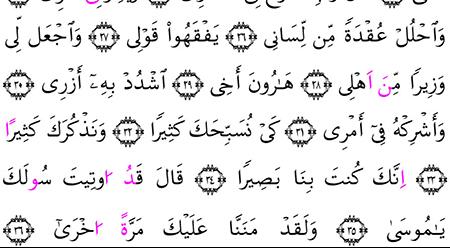 وَاَحْلُلْ عُقْدَةً مِّن لِّسَانِي ٢٦ يَفْقَهُواْ قَوْلِي ٢٧ وَاَجْعَل لِّي
وَزِيرًا مِّنَ اَهْلِي ٢٨ هَٰرُونَ أَخِي ٢٩ اَشْدُدْ بِهِۦٓ أَزْرِي ٣٠
وَأَشْرِكْهُ فِيٓ أَمْرِي ٣١ كَيْ نُسَبِّحَكَ كَثِيرًا ٣٢ وَنَذْكُرَكَ كَثِيرًا
٣٣ اِنَّكَ كُنتَ بِنَا بَصِيرًا ٣٤ قَالَ قَدُ اوتِيتَ سُولَكَ
يَٰمُوسَىٰ ٣٥ وَلَقَدْ مَنَنَّا عَلَيْكَ مَرَّةً اخْرَىٰٓ ٣٦